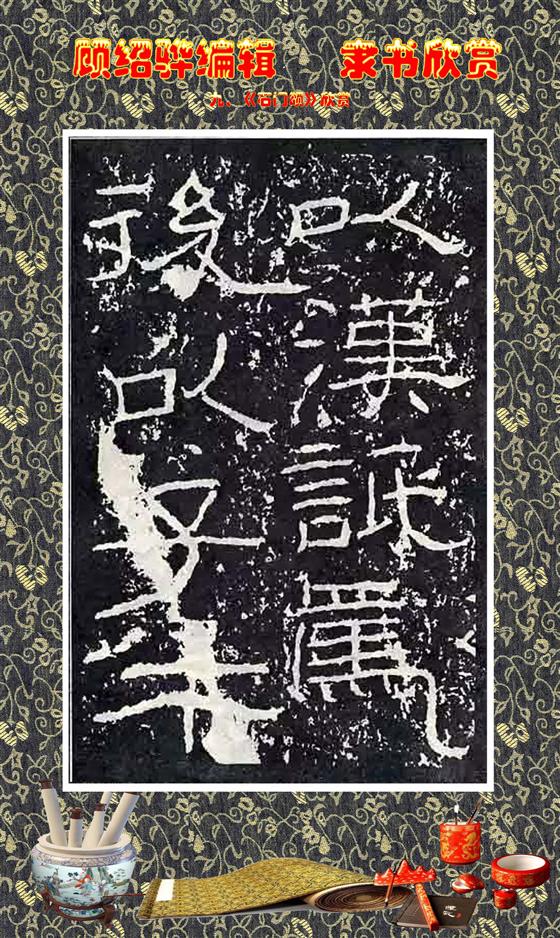 顾绍骅编辑 隶书欣赏
九、《石门颂》欣赏
以漢詆焉
後以子午